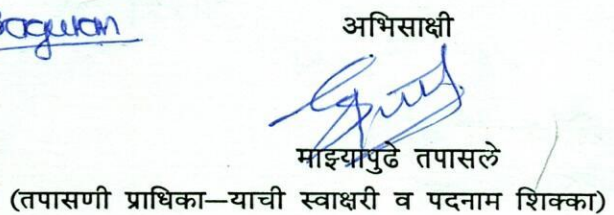 अभिसाक्षी
माझ्यापुढे तपासले
(तपासणी प्राधिका—याची स्वाक्षरी व पदनाम शिक्का)